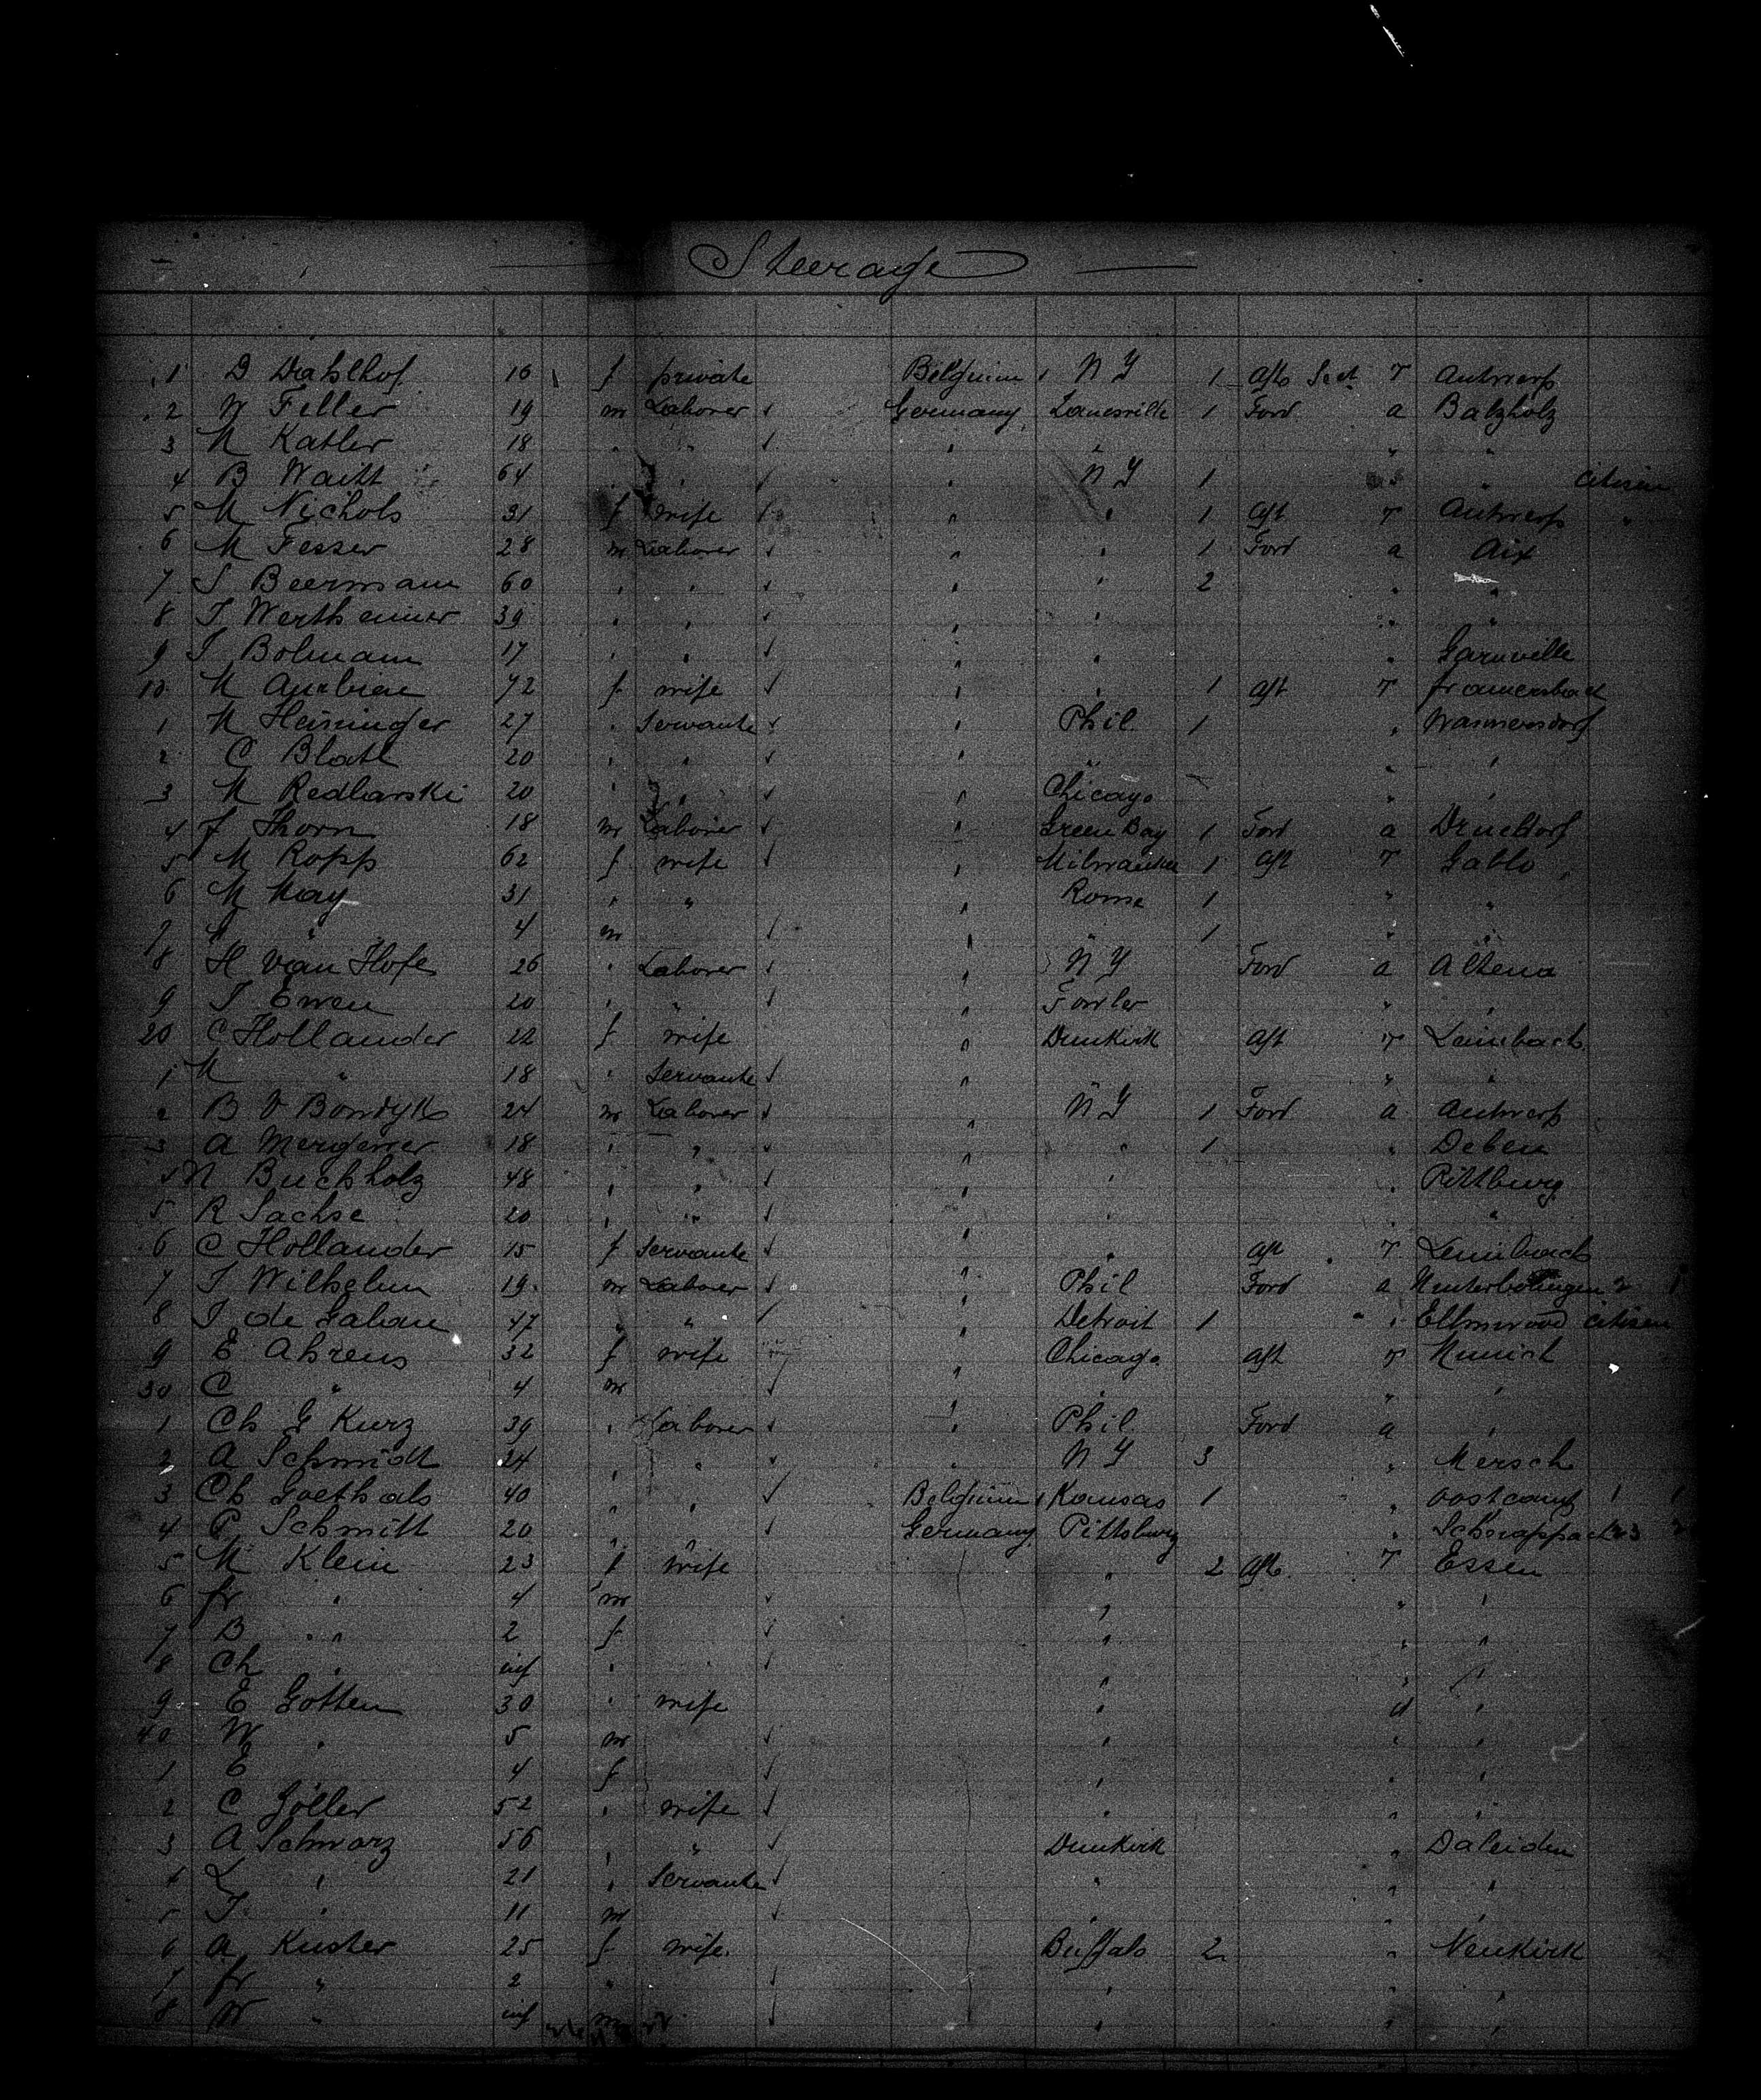 Steerage
1 D Drahlhof 16 f private Belgium NY 1 aft Sect T Antwerp
2 W Feller 19 m Laborer Germany Zanesville 1 Ford a Balzholz
3 M Katler 18 " " " " " "
4 B Waitt 64 " " " NY 1 " citizen
5 M Nichols 31 f wife " " 1 aft T Antwerp "
6 M Fesser 28 m Laborer " " 1 Ford a Aix
7 S Beermann 60 " " " " 2 " "
8 J Wertheimer 39 " " " " " "
9 J Bolmann 17 " " " " " Garnville
10 M 72 f wife " " 1 aft T
1 M Heininger 27 " Servante " Phil 1 " Wannersdorf
2 C Blatt 20 " " " " " "
3 M Redlarski 20 " " " Chicago " "
4 J Thorn 18 m Laborer " Green Bay 1 Ford a
5 M Ropp 62 f wife " Milwaukee 1 aft T Gablo
6 M May 31 " " " Rome 1 " "
7 " 4 m " " 1 " "
8 H van Hofe 26 " Laborer " NY Ford a Altena
9 J Ewen 20 " " " Fowler " "
20 C Hollander 22 f wife " Dunkirk aft T Leimbach
1 M " 18 " Servante " " "
2 B V Bondyk 24 m Laborer " NY 1 Ford a Antwerp
3 A Mergener 18 " " " " 1 " Deben
4 N Buchholz 48 " " " " " Pittburg
5 R Sachse 20 " " " " " "
6 C Hollander 15 f Servante " " aft T Leimbach
7 J Wilhelm 19 m Laborer " Phil Ford a
8 J de Gahan 47 " " " Detroit 1 " " Ellmwood citizen
9 E Ahrens 32 f wife " Chicago aft T Munich
30 C " 4 m " " " "
1 Ch G Kurz 39 " Laborer " Phil Ford a "
2 A Schmidt 24 " " " NY 3 " Mersch
3 Ch Goethals 40 " " Belgium Kansas 1 " Oostcamp 1 1
4 P Schmitt 20 " " Germany Pittsburg "
5 M Klein 23 f wife " 2 aft T Essen
6 fr " 4 m " " "
7 B " 2 f " " "
8 Ch " inf " " " "
9 E Gotten 30 " wife " " "
40 W " 5 m " " "
1 E 4 f " " "
2 C Zöller 52 " wife " " "
3 A Schwarz 56 " " Dunkirk " Daleiden
4 L " 21 " Servante " " "
5 J " 11 m " " "
6 A Kuster 25 f wife Buffalo 2 " Neukirk
7 fr " 2 " " " "
8 W " inf m " " "